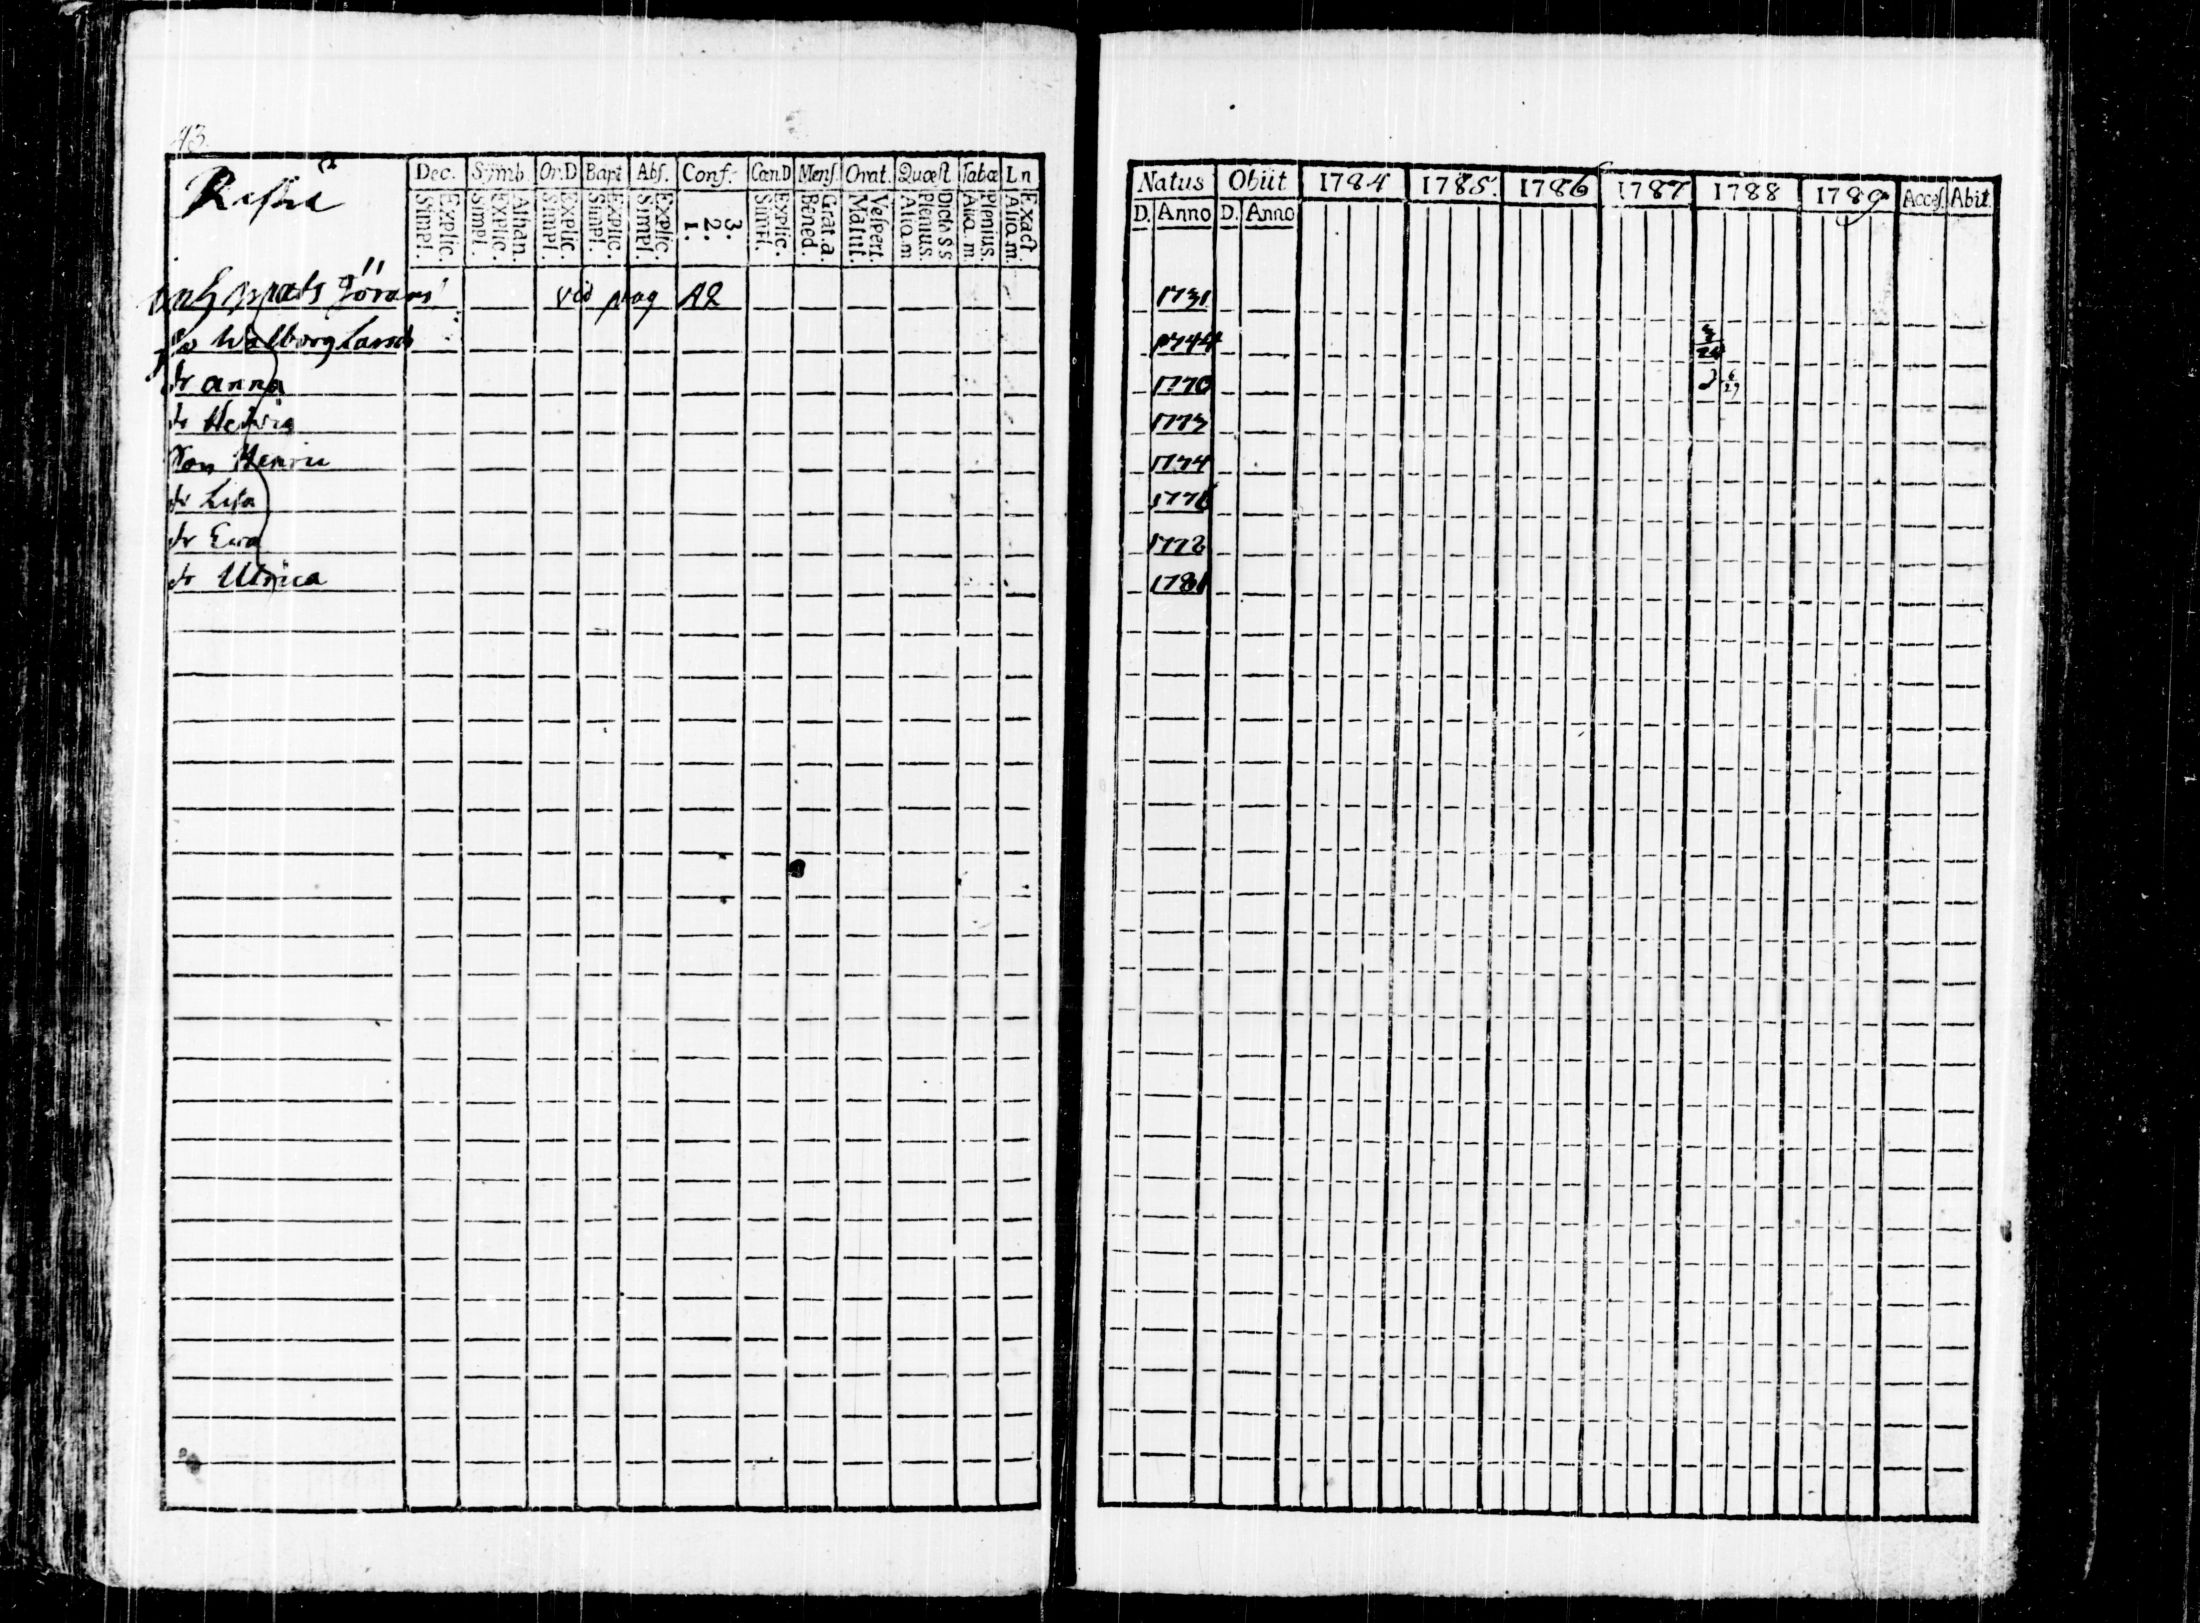 43.
Dec. Symb. Or.D Bapt Abs. Conf. Can.D Mens. Orat. Quæst Tabæ Ln
Explic. Simpl.
Athan. Explic. Simpl.
Explic. Simpl.
Explic. Simpl.
Explic. Simpl.
3. 2. 1.
Explic. Simpl.
Grat.a. Bened.
Vespert. Matut.
Dictis SS Plenius. Aliq.m
Plenius. Aliq. m.
Exact. Aliq.m.
Mats Görans vid pag 42
Walborg Larsdr
dr Anna
dr Hedvig
Son Henric
dr Lisa
dr Ewa
dr Ulrica
Natus Obiit 1784 1785. 1786 1787 1788 1789 Acces. Abit.
D. Anno D. Anno
1731
1744
1770 6 27
1773
1774
177
1778
1781